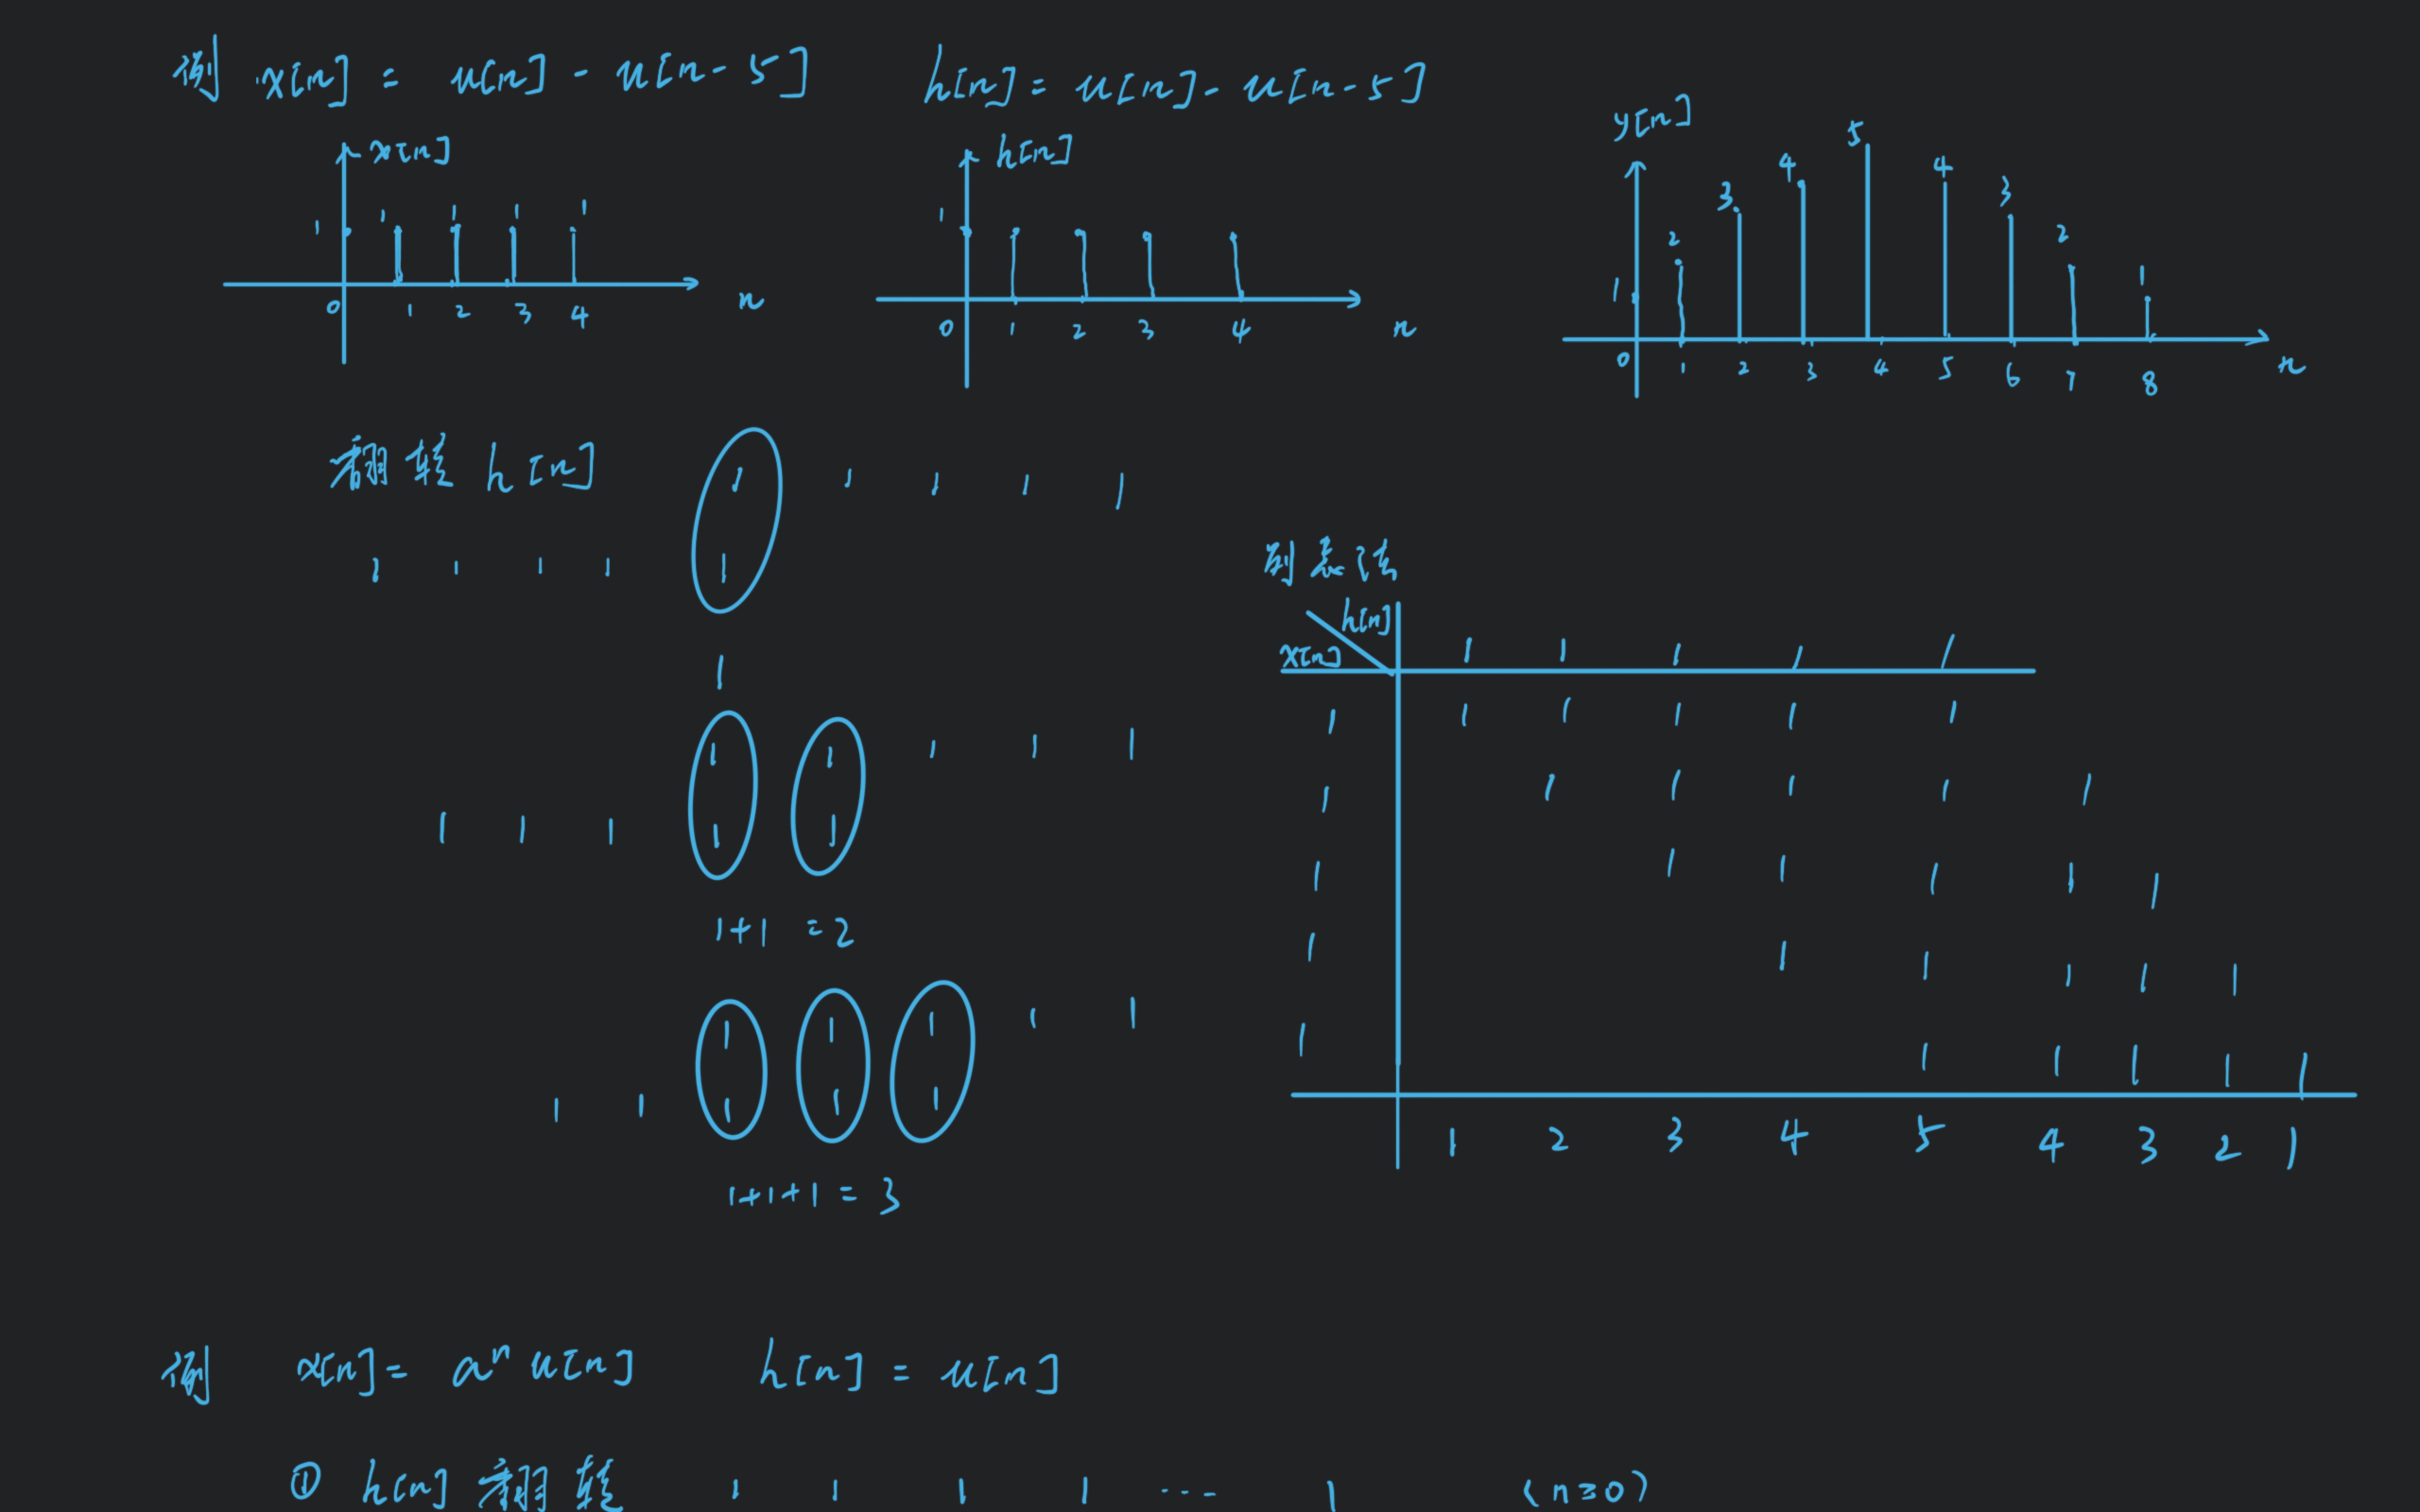 例 x[n] = u[n] - u[n-5] h[n] = u[n] - u[n-5]
x[n]
1 1 1 1 1
0 1 2 3 4 n
h[n]
1
0 1 2 3 4 n
y[n]
1 2 3 4 5 4 3 2 1
0 1 2 3 4 5 6 7 8 n
翻转 h[n]
1 1 1 1 1
1 1 1 1 1
1
1 1 1 1 1
1 1 1 1 1
1+1 = 2
1 1 1 1 1
1 1 1 1 1
1+1+1 = 3
列表法
h[n]
x[n] 1 1 1 1 1
1 1 1 1 1 1
1 1 1 1 1 1
1 1 1 1 1 1
1 1 1 1 1 1
1 1 1 1 1 1
1 2 3 4 5 4 3 2 1
例 x[n] = aⁿ u[n] h[n] = u[n]
① h[n] 翻转 1 1 1 1 ... 1 (n≥0)